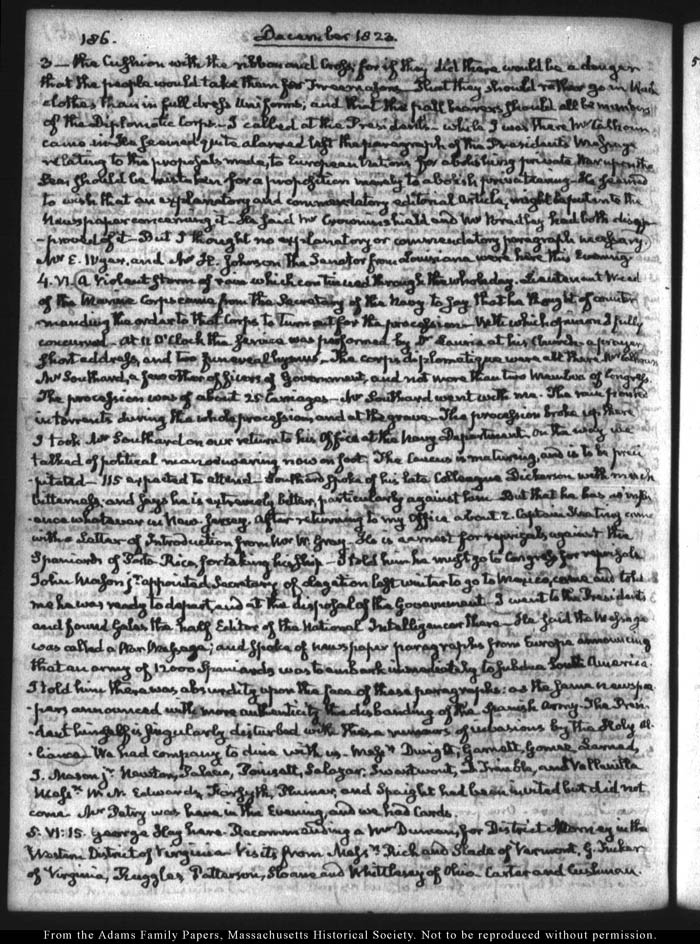 186. December 1823.
3 — the Cushion with the ribbon and Cross; for if they did there would be a danger
that the people would take them for Freemasons. That they should rather go in black
clothes than in full dress Uniforms; and that the pall bearers should all be members
of the Diplomatic Corps. I called at the President's. while I was there Mr Calhoun
came in. He seemed quite alarmed lest the paragraph of the President's Message
relating to the proposals made, to European Nations for abolishing private War upon the
Seas should be mistaken for a proposition merely to abolish privateering. He seemed
to wish that an explanatory and commendatory editorial article, might be put into the
Newspaper concerning it. He said Mr Crowninshield and Mr Bradley had both disap-
-proved of it — But I thought no explanatory or commendatory paragraph necessary.
Mr E. Wyer, and Mr H. Johnson the Senator from Louisiana were here this Evening
4. VI. A violent storm of rain which continued through the whole day. Lieutenant Weed
of the Marine Corps came from the Secretary of the Navy to say that he thought of counter-
manding the order to that Corps to turn out for the procession. With which opinion I fully
concurred. At 11 O'Clock the service was performed by Dr Laurie at his Church. a prayer,
short address, and two funeral hymns. The corps diplomatique were all there. Mr Calhoun
Mr Southard, a few other officers of Government, and not more than two Members of Congress.
The procession was of about 25 Carriages. Mr Southard went with me. The rain poured
in torrents during the whole procession, and at the grave. The procession broke up there
I took Mr Southard on our return to his Office at the Navy Department. On the way we
talked of political manoeuvering now on foot. The Caucus is maturing, and is to be preci-
-pitated — 115 expected to attend. Southard spoke of his late Colleague Dickerson with much
bitterness, and says he is extremely bitter, particularly against him. But that he has no influ-
-ence whatever in New-Jersey. After returning to my Office about 2. Captain Keating came
with a Letter of Introduction from Mr W. Gray. He is earnest for reprisals against the
Spaniards of Porto Rico, for taking his ship. I told him he must go to Congress for reprisals
John Mason Jr. appointed Secretary of Legation last winter to go to Mexico, came and told
me he was ready to depart, and at the disposal of the Government. I went to the President's
and found Gales the half Editor of the National Intelligencer there. He said the Message
was called a War Message; and spoke of newspaper paragraphs from Europe announcing
that an army of 12000 Spaniards was to embark immediately to subdue South America.
I told him there was absurdity upon the face of these paragraphs: as the same newspa-
-pers announced with more authenticity the disbanding of the Spanish Army. The Presi-
-dent himself is singularly disturbed with these rumours of invasions by the Holy Al-
-liance. We had company to dine with us. Messrs Dwight, Garnett, Learned,
J. Mason Jr. Newton, Poinsett, Salazar, Swartwout, D. Trimble, and
Messrs W. N. Edwards, Forsyth, Plumer, and Spaight had been invited but did not
come. Mr Petry was here in the Evening, and we had Cards.
5. VI:15. George Hay here. Recommending a Mr Duncan, for District Attorney in the
Western District of Virginia. Visits from Messrs Rich and Slade of Vermont, G. Tucker
of Virginia, Ruggles, Patterson, Sloane and Whittlesey of Ohio. Carter and Cushman.
From the Adams Family Papers, Massachusetts Historical Society. Not to be reproduced without permission.